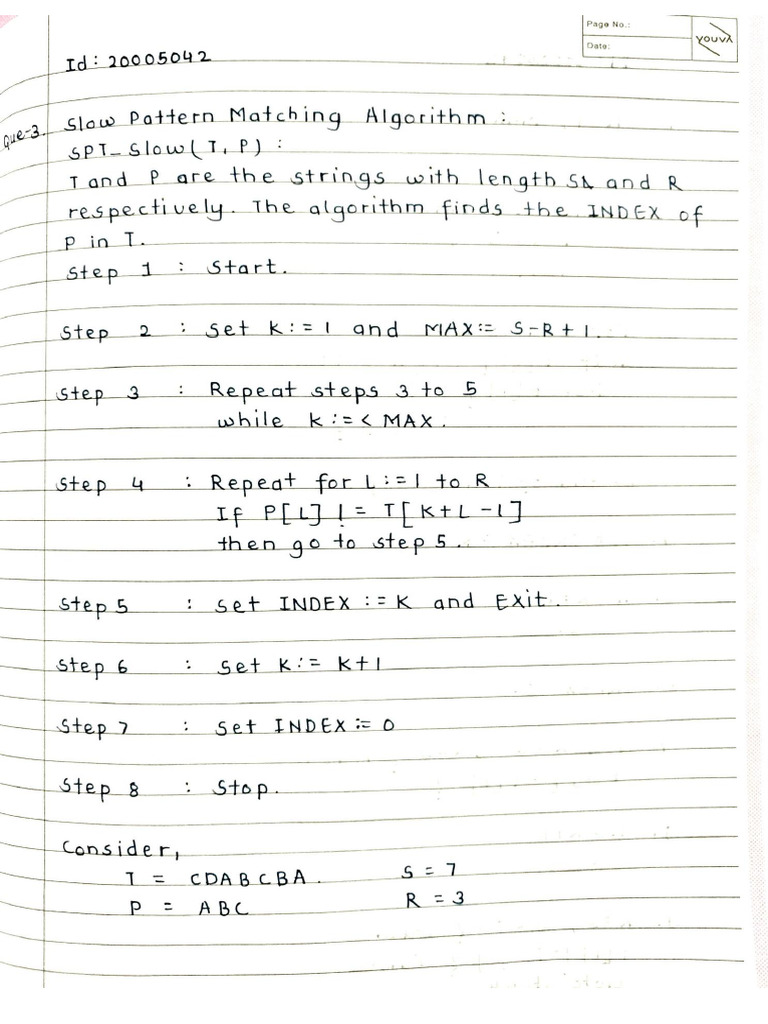 Page No.:
Date:
YOUVA
Id: 20005042
Que-3. Slow Pattern Matching Algorithm :
SPT_Slow(T, P) :
T and P are the strings with length S and R
respectively. The algorithm finds the INDEX of
P in T.
Step 1 : Start.
Step 2 : Set K:= 1 and MAX:= S-R+1.
Step 3 : Repeat steps 3 to 5
while K:=< MAX.
Step 4 : Repeat for L:=1 to R
If P[L] != T[K+L-1]
then go to step 5.
Step 5 : Set INDEX := K and Exit.
Step 6 : Set K:= K+1
Step 7 : Set INDEX:= 0
Step 8 : Stop.
Consider,
T = CDABCBA. S = 7
P = ABC R = 3